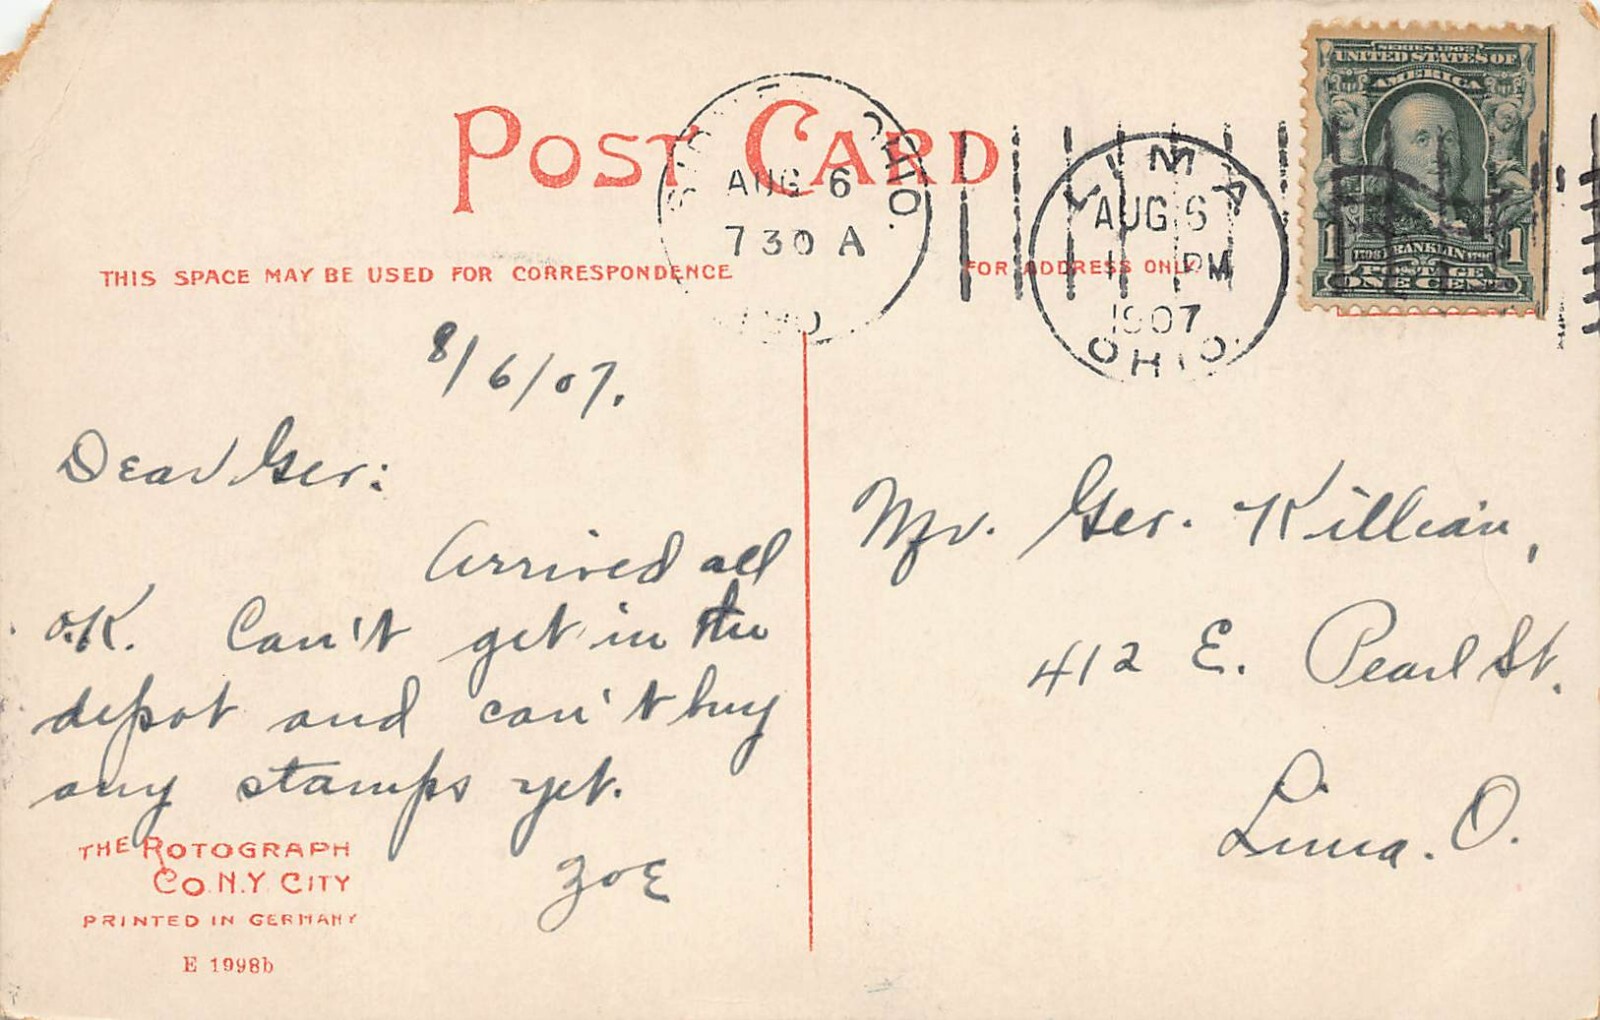 POST CARD
THIS SPACE MAY BE USED FOR CORRESPONDENCE
FOR ADDRESS ONLY
OHIO.
AUG 6
7 30 A
LIMA
AUG 6
PM
1907
OHIO.
SERIES 1902
UNITED STATES OF
AMERICA
1 FRANKLIN 1
POSTAGE
ONE CENT
8/6/07.
Dear Ger:
Arrived all
O.K. Can't get in the
depot and can't buy
any stamps yet.
Zoe
Mr. Ger. Killian,
412 E. Pearl St.
Lima. O.
THE ROTOGRAPH
CO. N.Y. CITY
PRINTED IN GERMANY
E 1998b